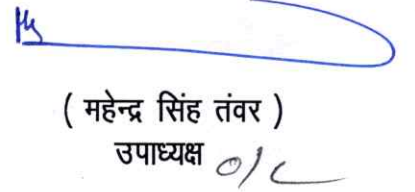 ( महेन्द्र सिंह तंवर )
उपाध्यक्ष o/c